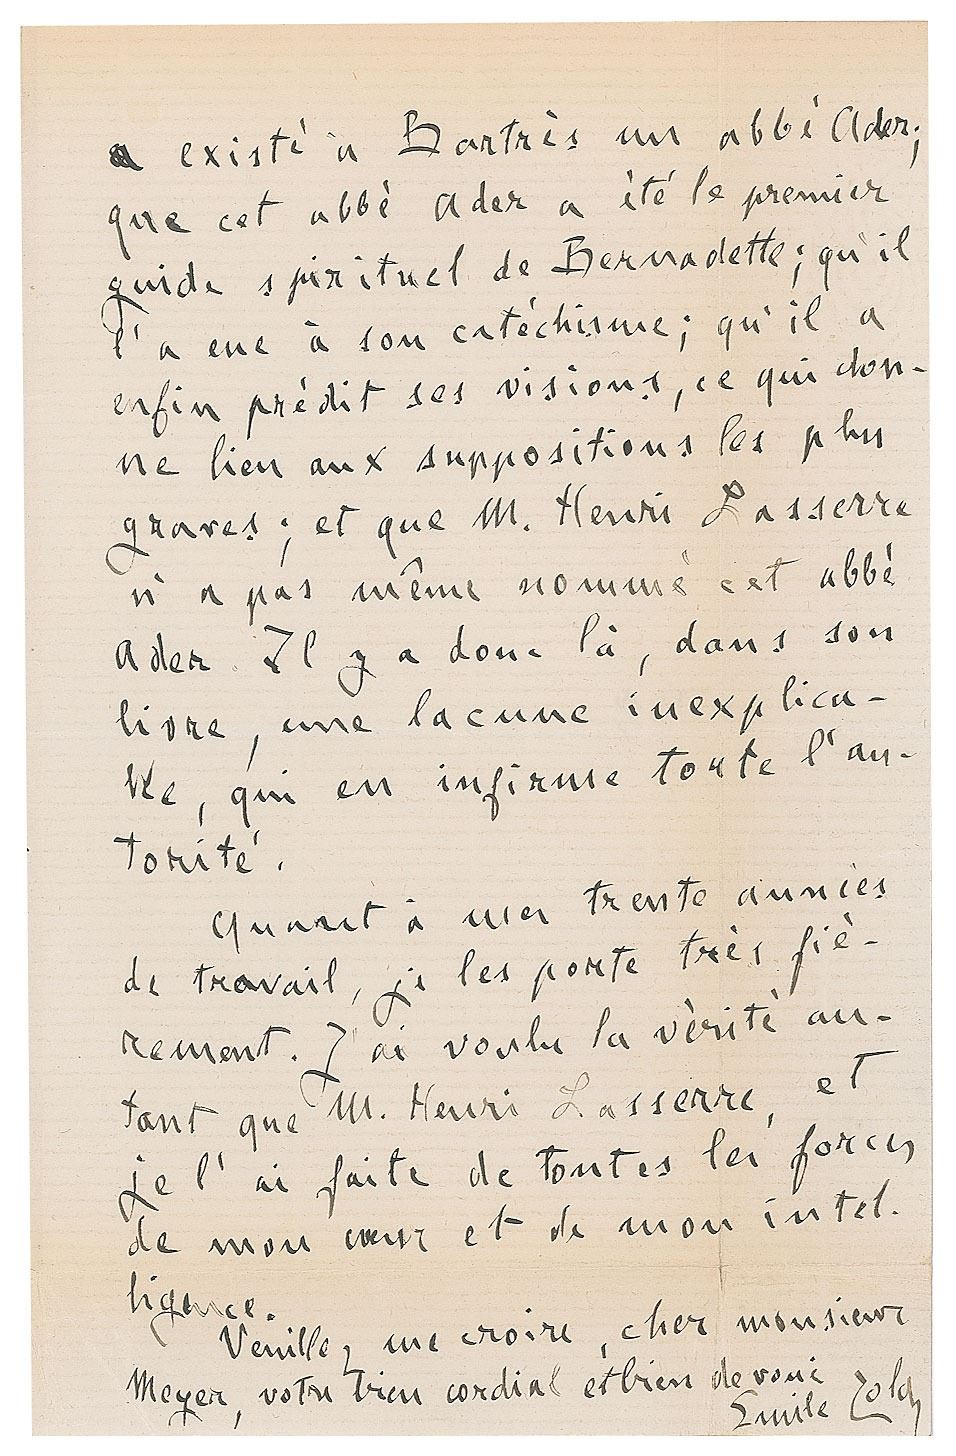 a existé à Bartrès un abbé Ader;
que cet abbé Ader a été le premier
guide spirituel de Bernadette; qu'il
l'a eue à son catéchisme; qu'il a
enfin prédit ses visions, ce qui don-
ne lieu aux suppositions les plus
graves; et que M. Henri Lasserre
n'a pas même nommé cet abbé
Ader. Il y a donc là, dans son
livre, une lacune inexplica-
ble, qui en infirme toute l'au-
torité.
Quant à mes trente années
de travail, je les porte très fiè-
rement. J'ai voulu la vérité au-
tant que M. Henri Lasserre, et
je l'ai faite de toutes les forces
de mon cœur et de mon intel-
ligence.
Veuillez me croire, cher monsieur
Meyer, votre bien cordial et bien devoué
Emile Zola